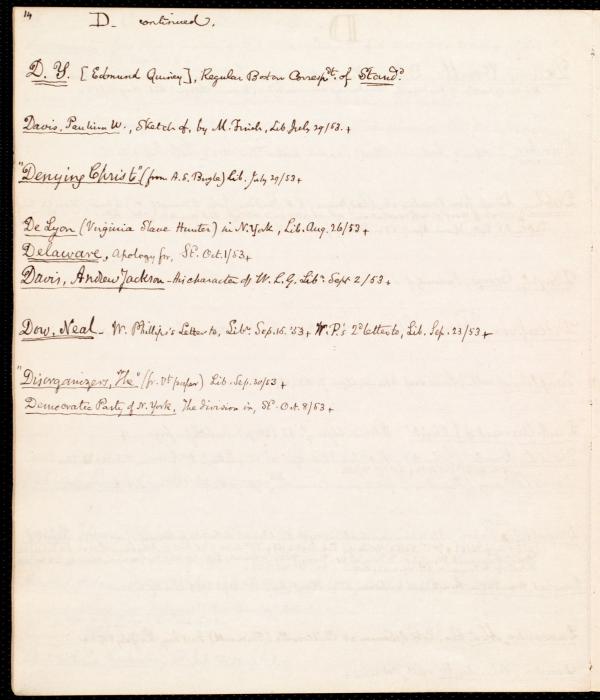 14
D. continued.
D. Y. [Edmund Quincy], Regular Boston Corresp.t of Stand.d
Davis, Paulina W., Sketch of, by M. Trish, Lib. July 29/53. +
"Denying Christ" (from A. S. Bugle) Lib. July 29/53 +
De Lyon (Virginia Slave Hunter) in N. York, Lib. Aug. 26/53 +
Delaware, Apology for, St. Oct. 1/53 +
Davis, Andrew Jackson - his character of W. L. G. Libr. Sept. 2/53 +
Dow, Neal - W. Phillips's Letter to, Libr. Sep. 16. '53 + W. P.'s 2d letter to, Lib. Sep. 23/53 +
"Disorganizers, The" (fr. Vt. paper) Lib. Sep. 30/53 +
Democratic Party of N. York, The division in, St. Oct. 8/53 +